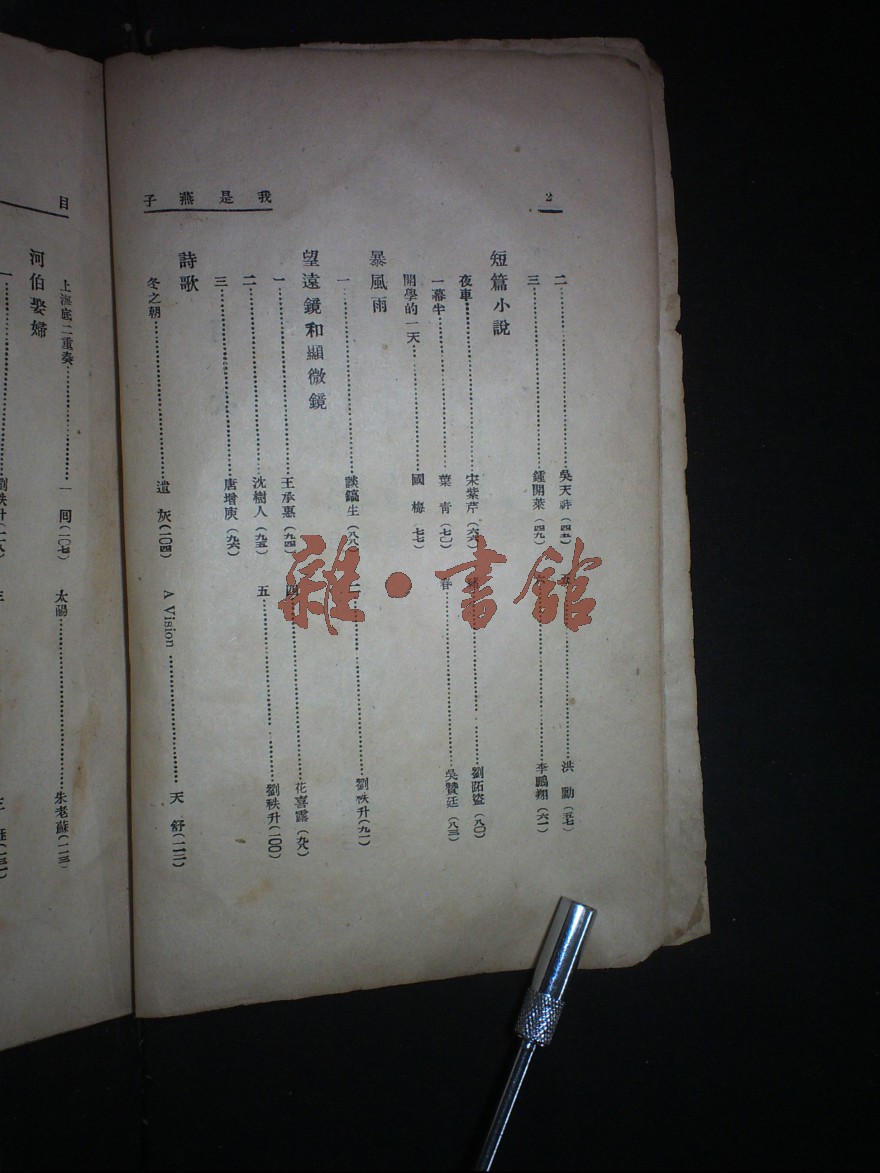 2
我是燕子
二 吳天 (四五) 五 洪勳 (五七)
三 鍾開萊 (四九) 李鵬翔 (六一)
短篇小說
夜車 宋紫芹 (六六) 劉 (八〇)
一幕半 葉青 (七〇) 春 吳贊廷 (八三)
開學的一天 國梅 (七七)
暴風雨
一 談鎬生 (八八) 二 劉秩升 (九一)
望遠鏡和顯微鏡
一 王承惠 (九四) 四 花喜露 (九八)
二 沈樹人 (九五) 五 劉秩升 (100)
三 唐增庚 (九六)
詩歌
冬之朝 遣灰 (一〇四) A Vision 天舒 (一一二)
目
上海底二重奏 一囘 (一〇七) 太陽 朱老蘇 (一一三)
河伯娶婦
一 劉秩升
雜·書館